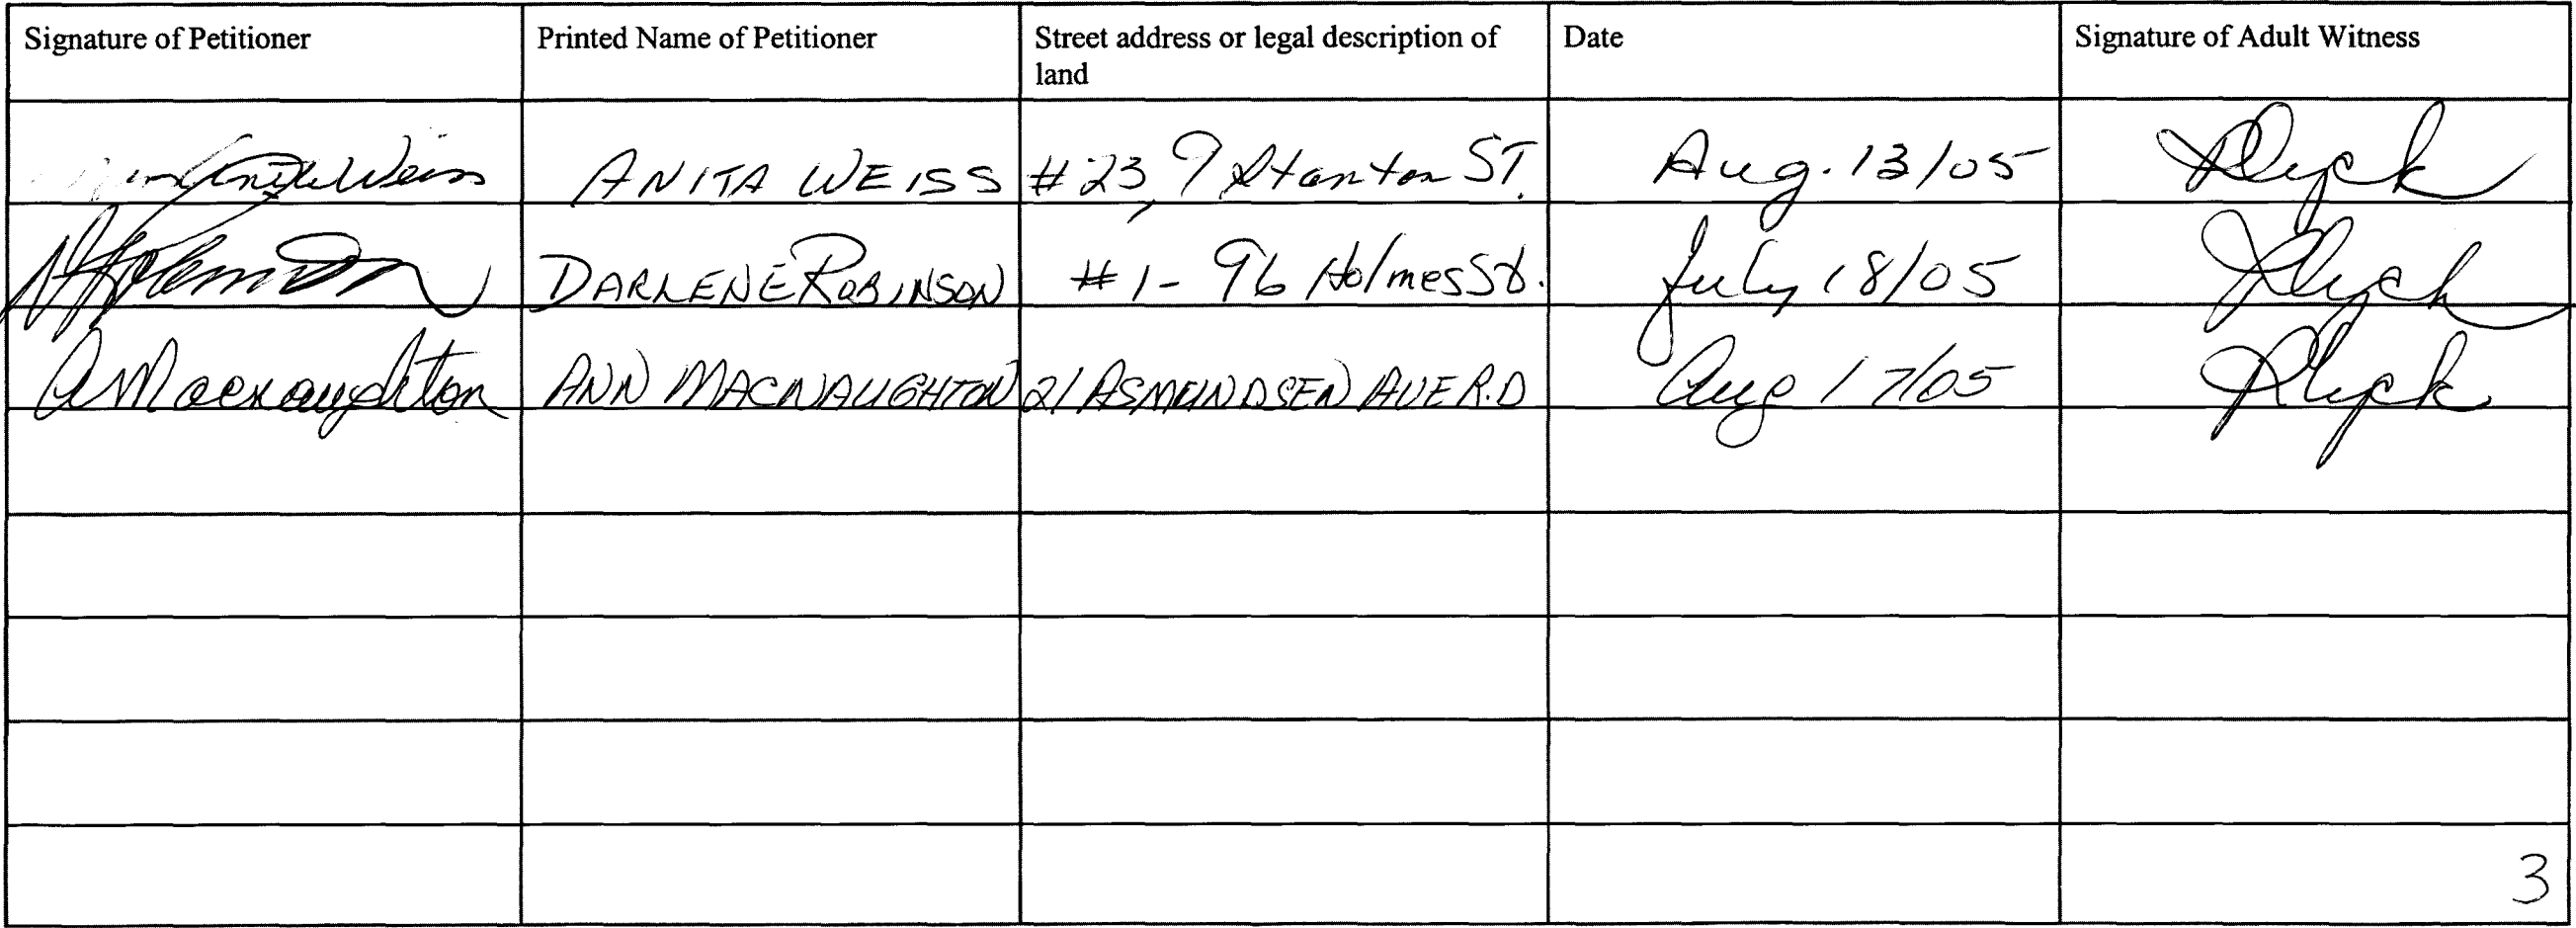 Signature of Petitioner Printed Name of Petitioner Street address or legal description of Date Signature of Adult Witness
land
Anita Weiss ANITA WEISS #23, 9 Stanton ST. Aug. 13/05 Dyck
DARLENE ROBINSON #1- 96 Holmes St. July 18/05 Dyck
A Macnaughton ANN MACNAUGHTON 21 ASMUNDSEN AVE R.D Aug 17/05 Dyck
3